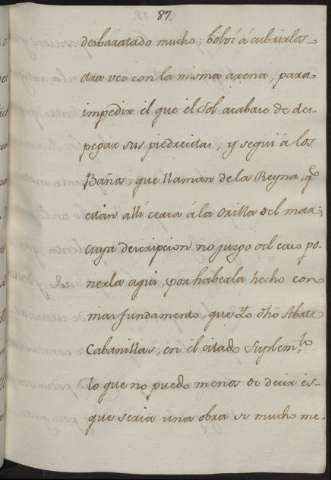 87.
desbaratado mucho; bolvi á cubrirlos
otra vez con la misma arena, para
impedir el que el Sol acabase de des-
pegar sus piedrecitas, y seguí á los
Baños, que llaman de la Reyna, q.e
están allí cerca á la orilla del mar
cuya descripcion no juzgo del caso po-
nerla aqui, por háberla hecho con
mas fundamento, que Yo dho Abate
Cabanillas, en el citado Suplem.to
lo que no puedo menos de decir es
que seria una obra de mucho me-